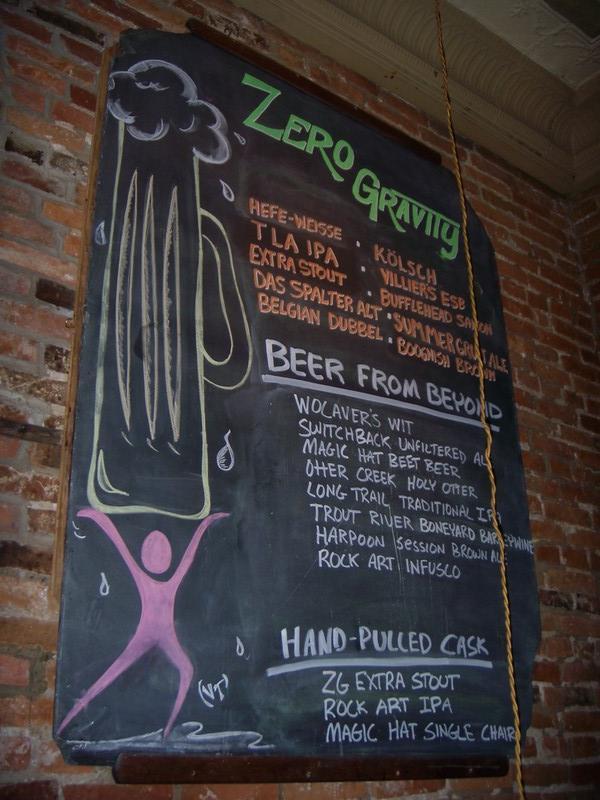 ZERO GRAVITY
HEFE-WEISSE · KÖLSCH
TLA IPA · VILLIER'S ESB
EXTRA STOUT · BUFFLEHEAD SAISON
DAS SPALTER ALT · SUMMER GRUIT ALE
BELGIAN DUBBEL · BOOGNISH BROWN
BEER FROM BEYOND
WOLAVER'S WIT
SWITCHBACK UNFILTERED ALE
MAGIC HAT BEET BEER
OTTER CREEK HOLY OTTER
LONG TRAIL TRADITIONAL IPA
TROUT RIVER BONEYARD BARLEYWINE
HARPOON SESSION BROWN ALE
ROCK ART INFUSCO
HAND-PULLED CASK
ZG EXTRA STOUT
ROCK ART IPA
MAGIC HAT SINGLE CHAIR
(VT)